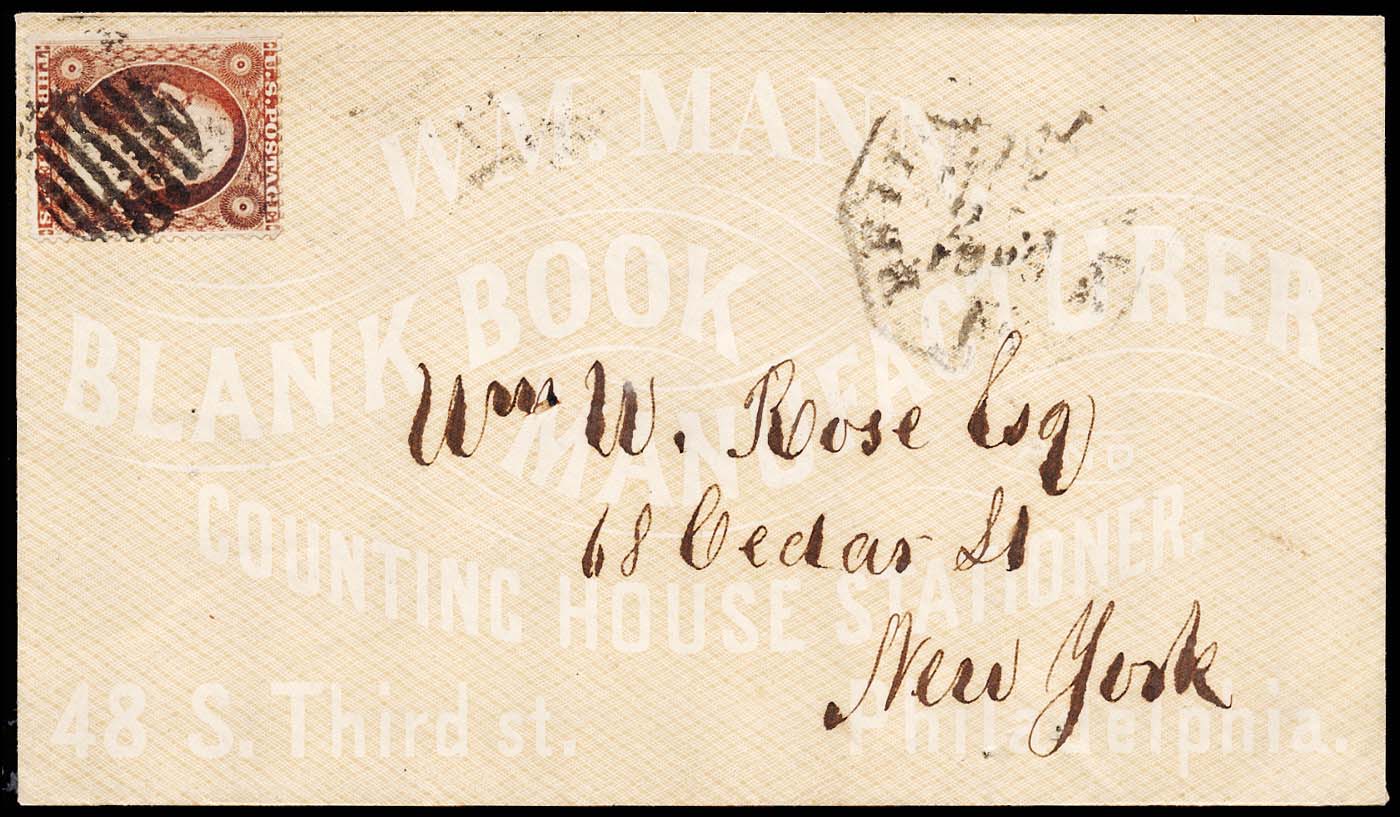 U.S. POSTAGE
WM. MANN
BLANK BOOK
MANUFACTURER
COUNTING HOUSE STATIONER.
48 S. Third st. Philadelphia.
Wm W. Rose Esq
68 Cedar St
New York